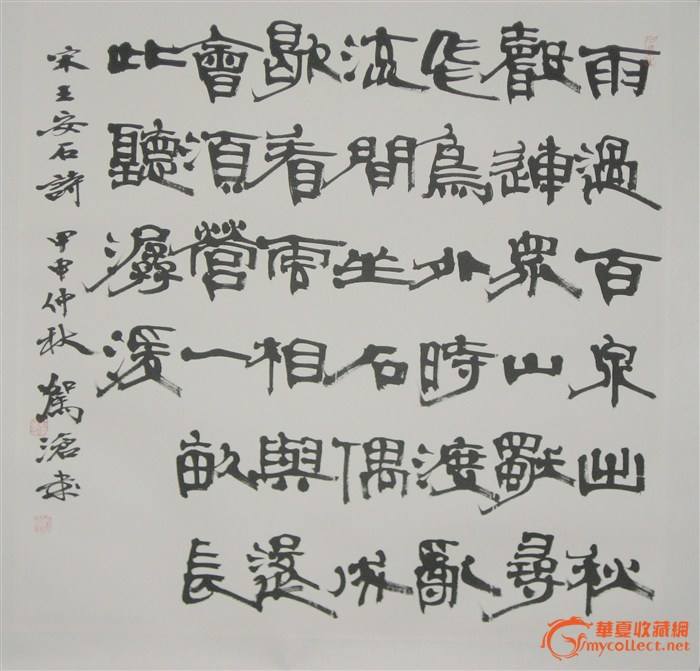 雨過百泉出秋
聲連眾山獨尋
飛鳥外時渡亂
流間坐石偶成
歇看雲相與還
會須營一畝長
此聽潺湲
宋王安石詩 甲申仲秋
華夏收藏網
mycollect.net